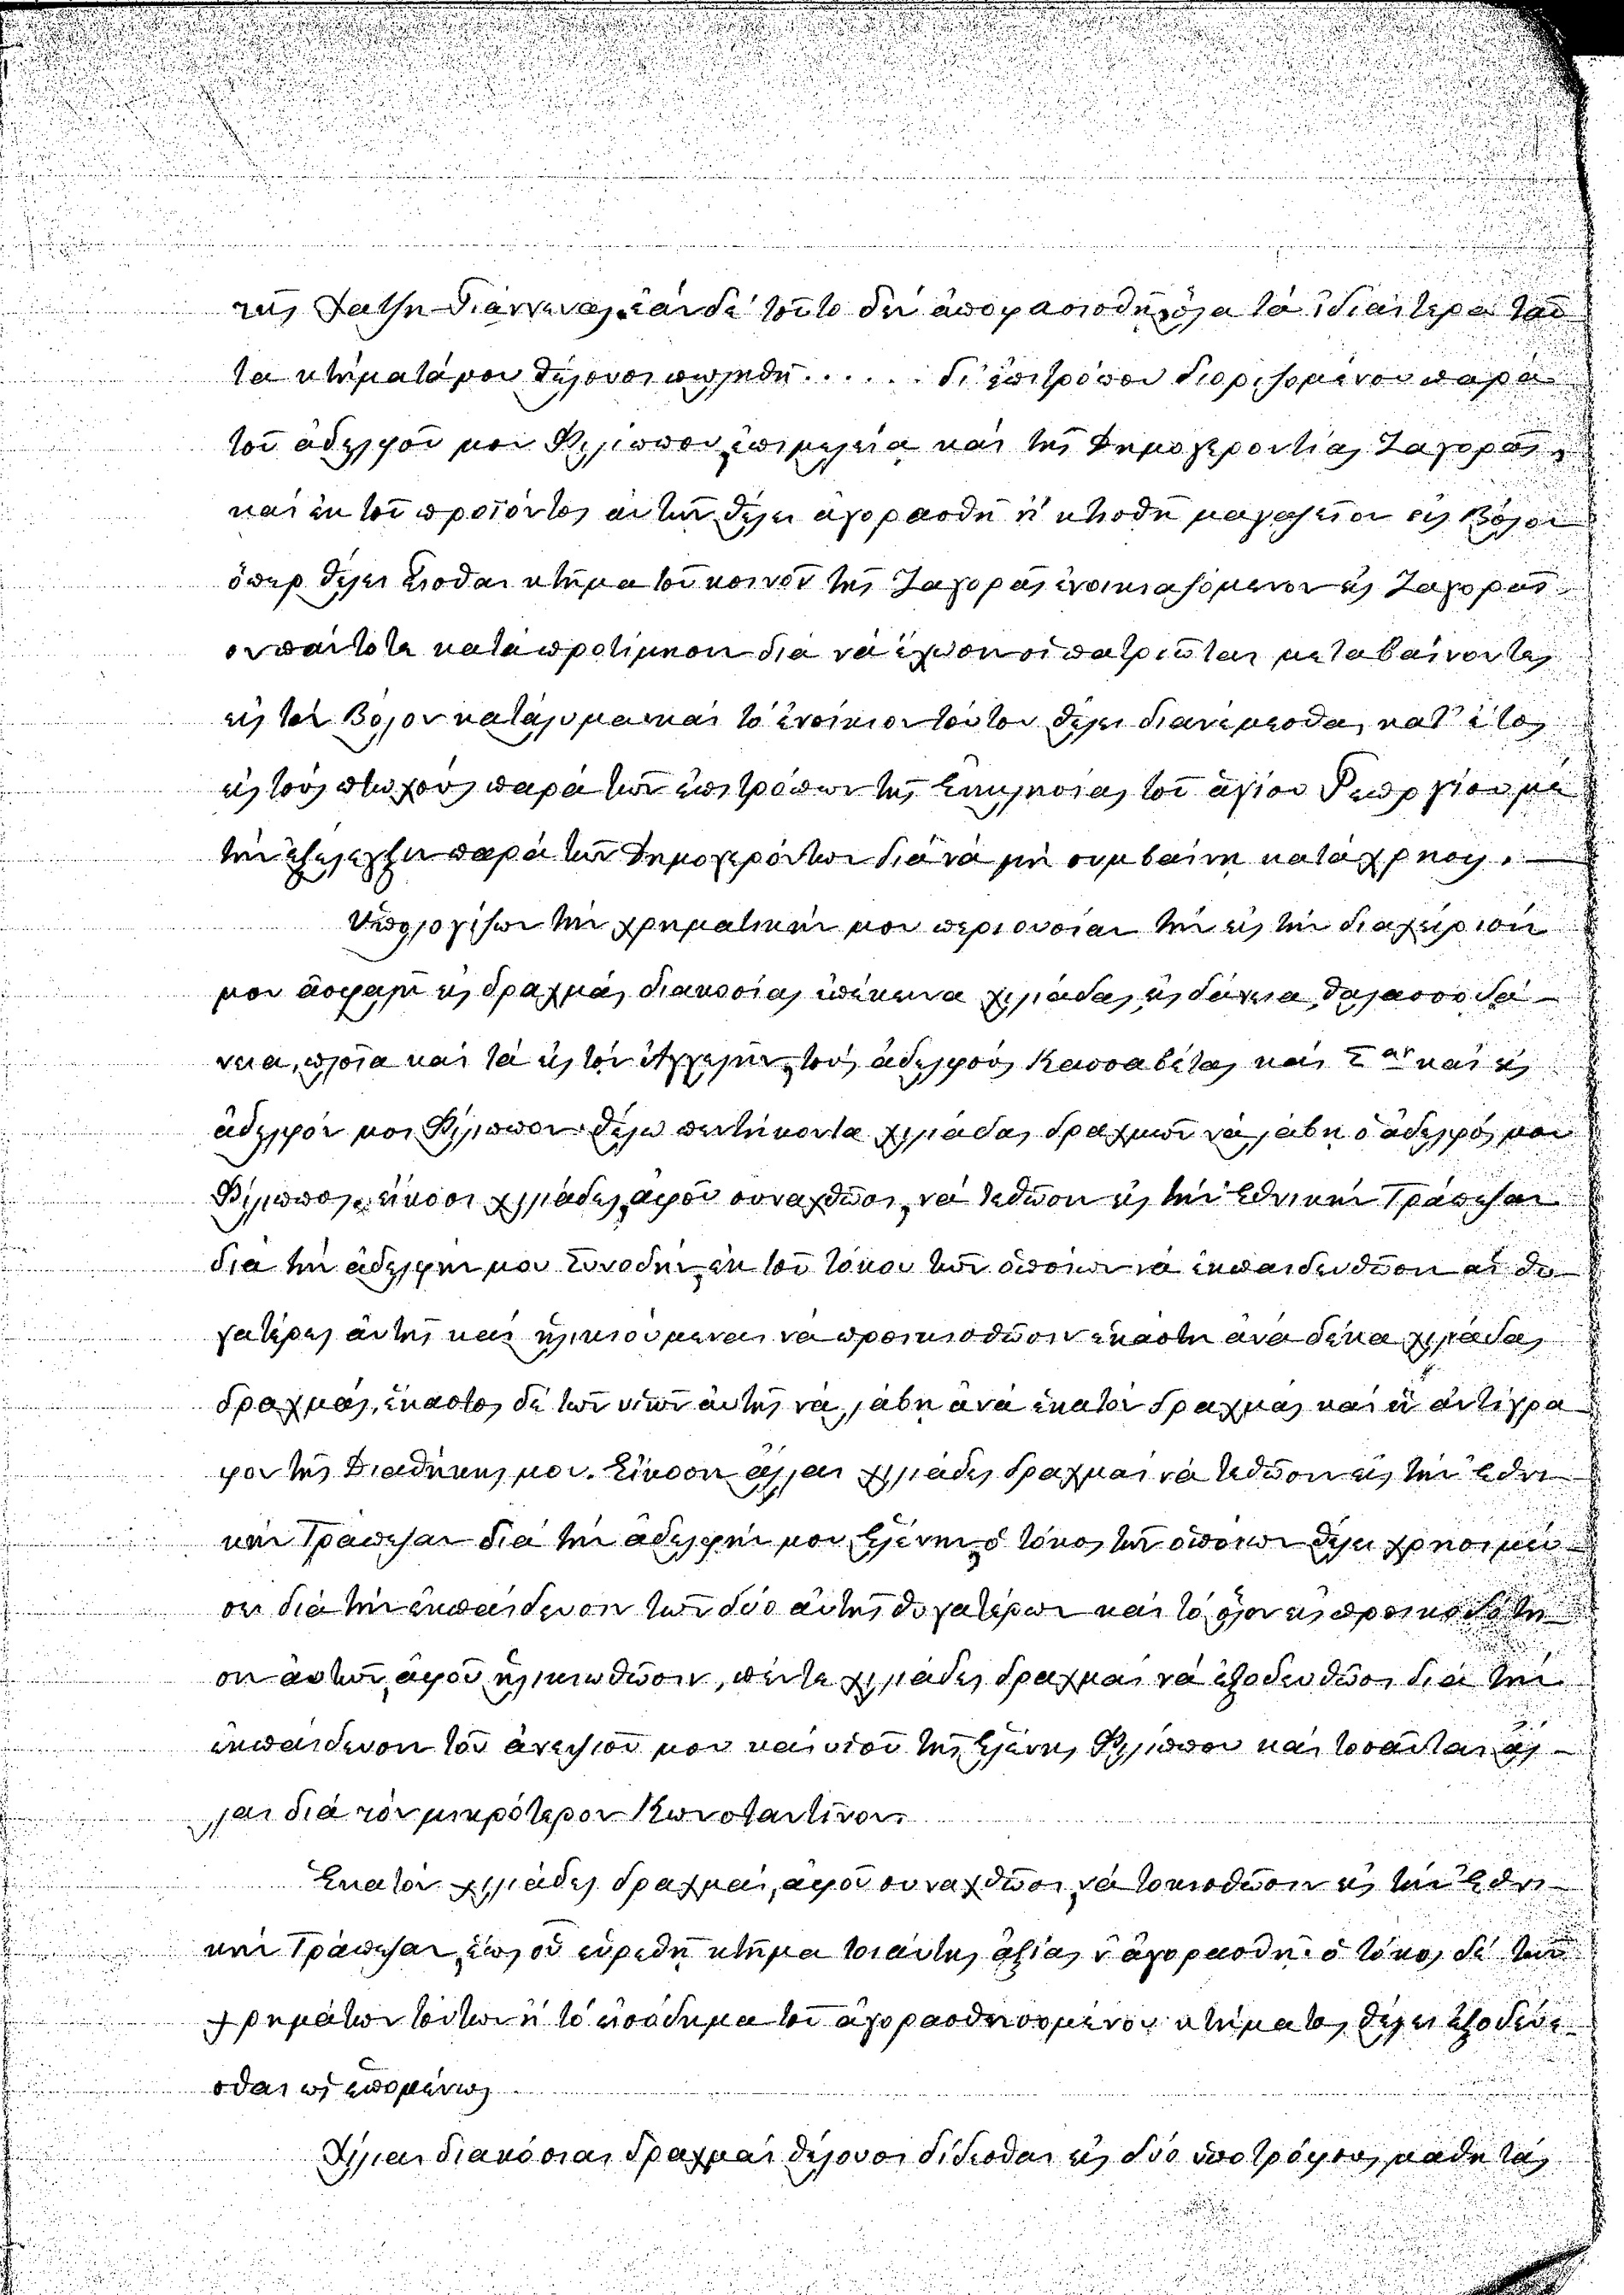 της Χατζη Γιάννενας. ἐὰν δὲ τοῦτο δὲν ἀποφασισθῇ, ὅλα τὰ ἰδιαίτερα ταῦ
τα κτήματά μου θέλουσι πωληθῆ . . . . . . δι' ἐπιτρόπου διοριζομένου παρὰ
τοῦ ἀδελφοῦ μου Φιλίππου, ἐπιμελείᾳ καὶ τῆς Δημογεροντίας Ζαγορᾶς,
καὶ ἐκ τοῦ προϊόντος αὐτῶν θέλει ἀγορασθῆ ἢ κτισθῆ μαγαζεῖον εἰς Βόλον
ὅπερ θέλει εἶσθαι κτῆμα τοῦ κοινοῦ τῆς Ζαγορᾶς ἐνοικιαζόμενον εἰς Ζαγορα
ον πάντοτε κατὰ προτίμησιν διὰ νὰ ἔχωσιν οἱ πατριῶται μεταβαίνοντες
εἰς τὸν Βόλον κατάλυμα· καὶ τὸ ἐνοίκιον τούτου θέλει διανέμεσθαι κατ' ἔτος
εἰς τοὺς πτωχοὺς παρὰ τῶν ἐπιτρόπων τῆς Ἐκκλησίας τοῦ ἁγίου Γεωργίου μὲ
τὴν ἐξέλεγξιν παρὰ τῶν Δημογερόντων διὰ νὰ μὴ συμβαίνῃ κατάχρησις. —
Ὑπολογίζων τὴν χρηματικήν μου περιουσίαν τὴν εἰς τὴν διαχείρισίν
μου ἀσφαλῆ εἰς δραχμὰς διακοσίας ἐπέκεινα χιλιάδας, εἰς δάνεια, θαλασσοδά–
νεια, πλοῖα καὶ τὰ εἰς τὸν Ἀγγελῆν, τοὺς ἀδελφοὺς Κασσαβέτας καὶ Σαν καὶ εἰς
ἀδελφόν μου Φίλιππον· θέλω πεντήκοντα χιλιάδας δραχμῶν νὰ λάβῃ ὁ ἀδελφός μου
Φίλιππος, εἴκοσι χιλιάδες, ἀφοῦ συναχθῶσι, νὰ τεθῶσιν εἰς τὴν Ἐθνικὴν Τράπεζαν
διὰ τὴν ἀδελφήν μου Συνοδήν, ἐκ τοῦ τόκου τῶν ὁποίων νὰ ἐκπαιδευθῶσιν αἱ θυ–
γατέρες αὐτῆς καὶ ἡλικιούμεναι νὰ προικισθῶσιν ἑκάστη ἀνὰ δέκα χιλιάδας
δραχμάς, ἕκαστος δὲ τῶν υἱῶν αὐτῆς νὰ λάβῃ ἀνὰ ἑκατὸν δραχμὰς καὶ ἓν ἀντίγρα–
φον τῆς Διαθήκης μου. Εἴκοσιν ἄλλαι χιλιάδες δραχμαὶ νὰ τεθῶσιν εἰς τὴν Ἐθνι–
κὴν Τράπεζαν διὰ τὴν ἀδελφήν μου Ἑλένην, ὁ τόκος τῶν ὁποίων θέλει χρησιμεύ–
σει διὰ τὴν ἐκπαίδευσιν τῶν δύο αὐτῆς θυγατέρων καὶ τὸ ὅλον εἰς προικοδότη–
σιν αὐτῶν, ἀφοῦ ἡλικιωθῶσιν, πέντε χιλιάδες δραχμαὶ νὰ ἐξοδευθῶσι διὰ τὴν
ἐκπαίδευσιν τοῦ ἀνεψιοῦ μου καὶ υἱοῦ τῆς Ἑλένης Φιλίππου καὶ τοσαῦται ἄλ–
λαι διὰ τὸν μικρότερον Κωνσταντῖνον.
Ἑκατὸν χιλιάδες δραχμαί, ἀφοῦ συναχθῶσι, νὰ τοκισθῶσιν εἰς τὴν Ἐθνι–
κὴν Τράπεζαν, ἕως οὗ εὑρεθῇ κτῆμα τοιαύτης ἀξίας ν' ἀγορασθῇ· ὁ τόκος δὲ τῶν
χρημάτων τούτων ἢ τὸ εἰσόδημα τοῦ ἀγορασθησομένου κτήματος θέλει ἐξοδεύε–
σθαι ὡς ἑπομένως
Χίλιαι διακόσιαι δραχμαὶ θέλουσι δίδεσθαι εἰς δύο ὑποτρόφους μαθητὰς